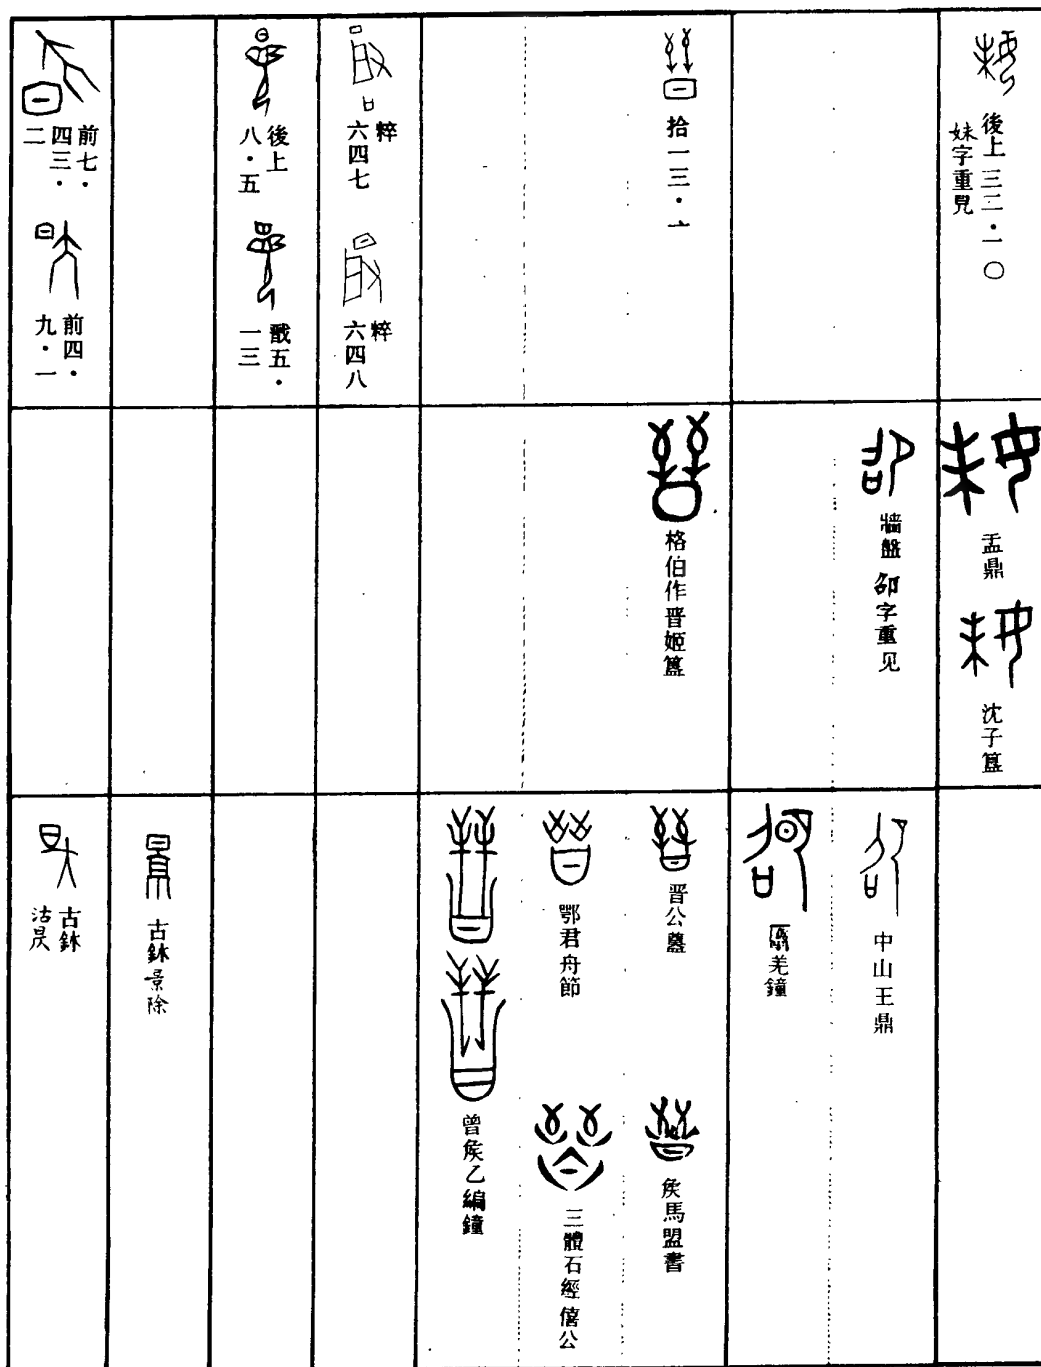 後上三二·一〇
妹字重見
拾一三·六
粹
六四七
粹
六四八
後上
八·五
戩五·
一三
前七·
四三·
二
前四·
九·一
盂鼎
沈子簋
牆盤 卲字重见
格伯作晋姬簋
中山王鼎
羌鐘
晋公𥂴
矦馬盟書
鄂君舟節
三體石經僖公
曾矦乙編鐘
古鉨 景除
古鉨
沽昃